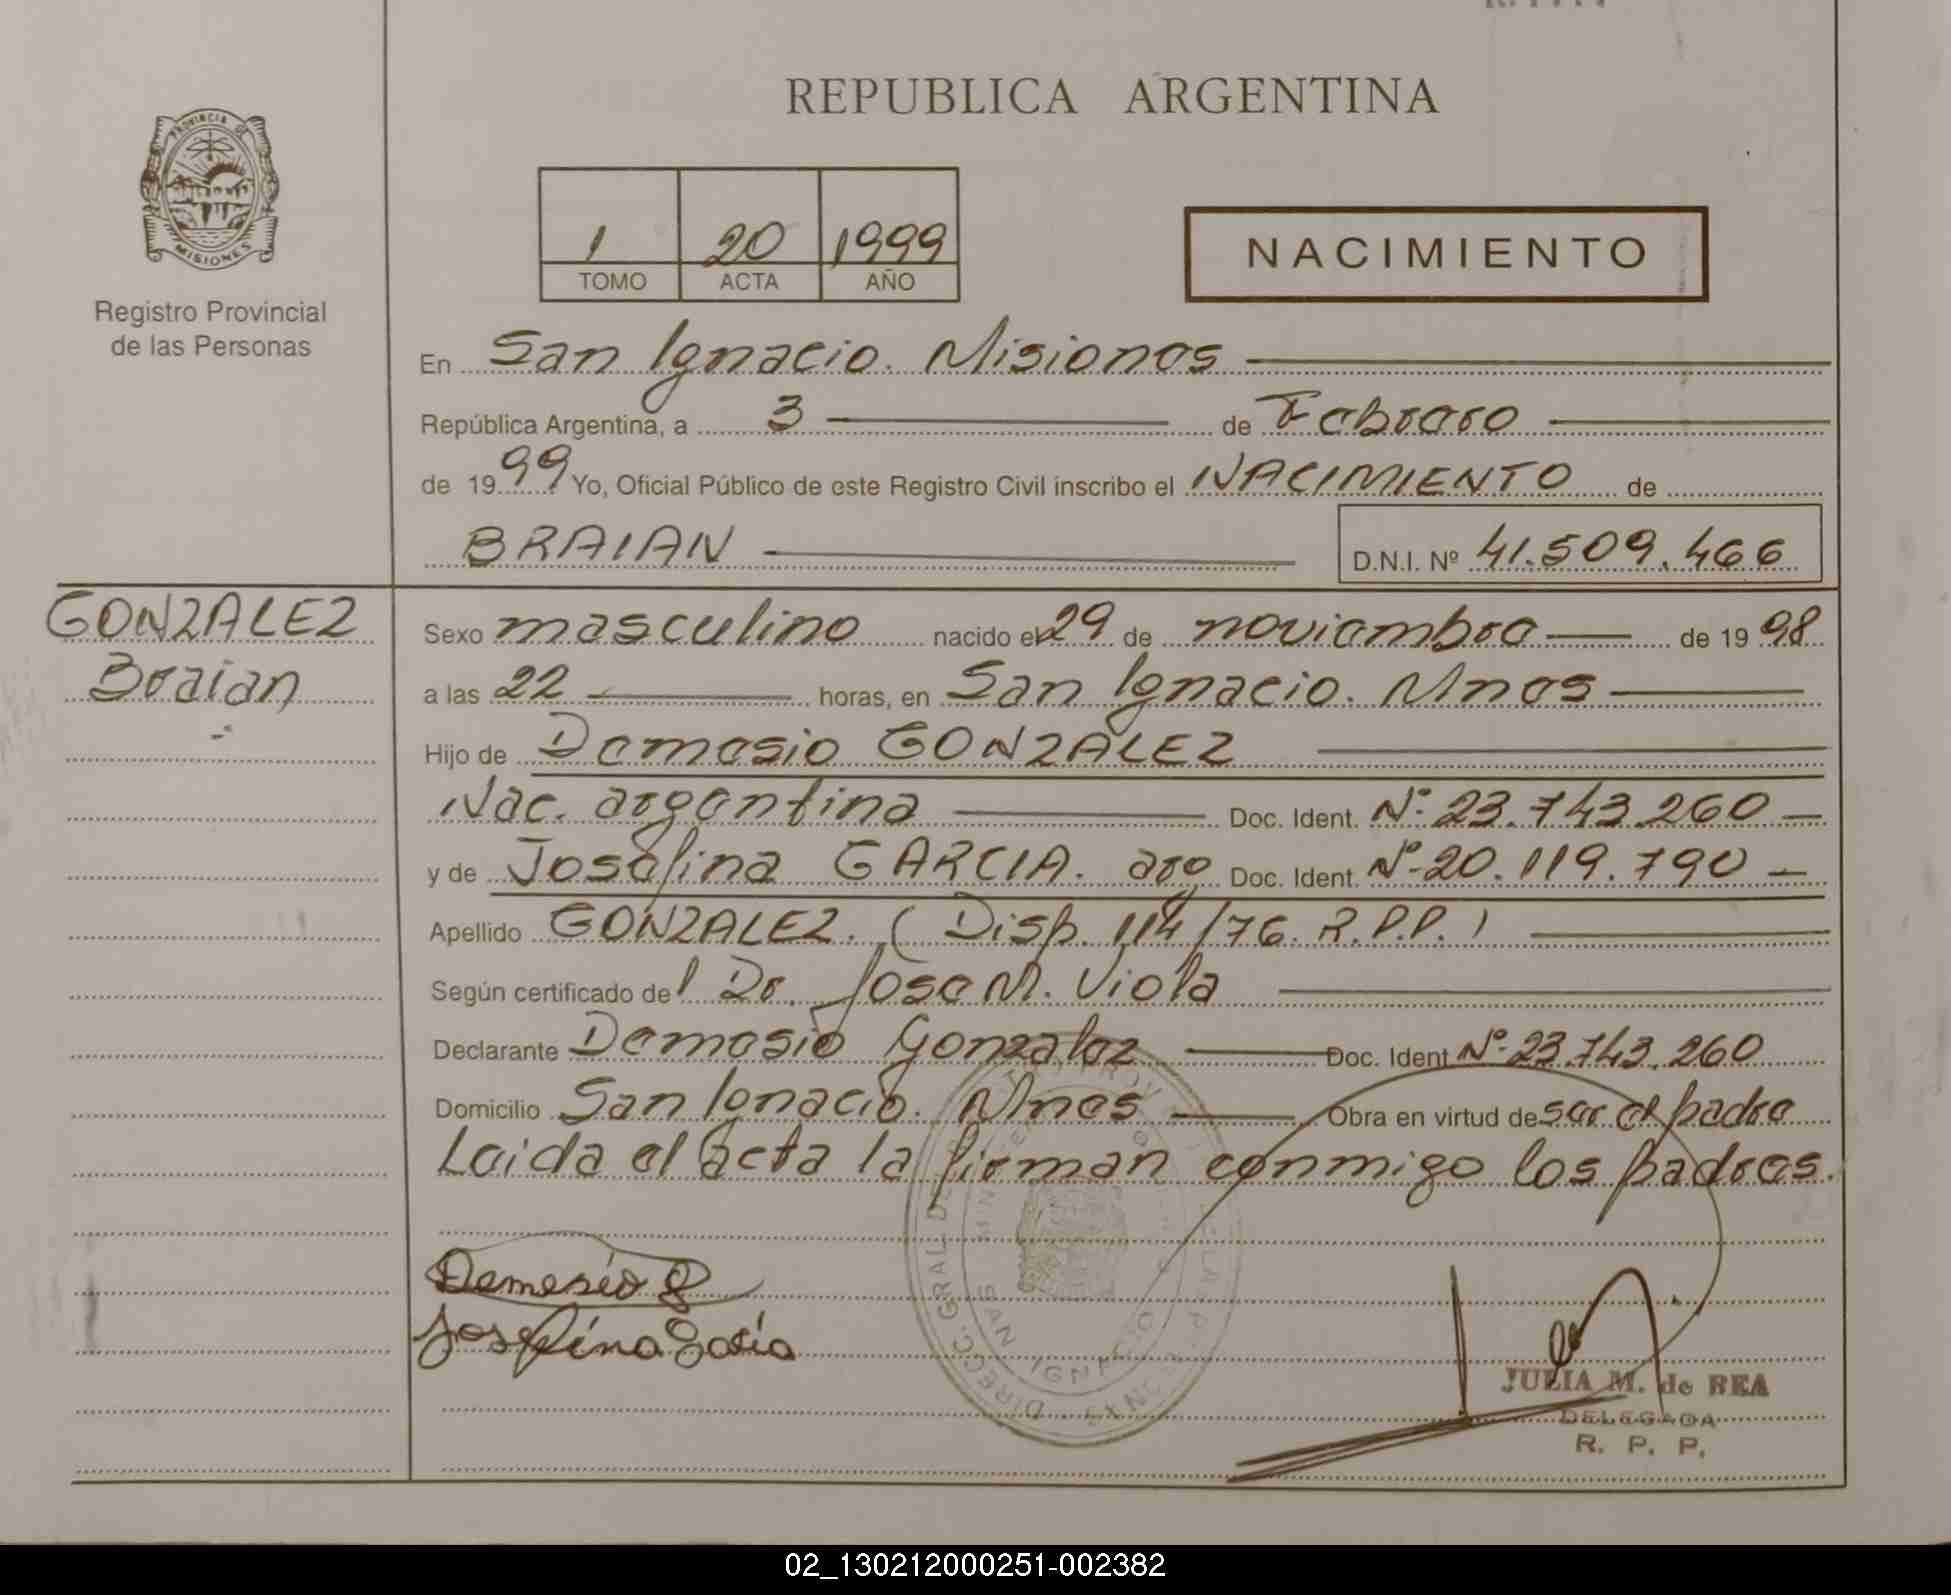 REPUBLICA ARGENTINA
PROVINCIA DE
MISIONES
Registro Provincial
de las Personas
1 20 1999
TOMO ACTA AÑO
NACIMIENTO
En San Ignacio. Misiones
República Argentina, a 3 de Febrero
de 1999 Yo, Oficial Público de este Registro Civil inscribo el NACIMIENTO de
BRAIAN D.N.I. Nº 41.509.466
GONZALEZ
Braian
Sexo masculino nacido el 29 de noviembre de 1998
a las 22 horas, en San Ignacio. Mnes
Hijo de Demesio GONZALEZ
Nac. argentina Doc. Ident. Nº 23.743.260
y de Josefina GARCIA. arg Doc. Ident. Nº 20.119.790
Apellido GONZALEZ. (Disp. 114/76. R.P.P.)
Según certificado del Dr. Jose M. Viola
Declarante Demesio Gonzalez Doc. Ident Nº 23.743.260
Domicilio San Ignacio. Mnes Obra en virtud de ser el padre
Leida el acta la firman conmigo los padres.
Demesio G
Josefina Garcia
DIRECC. GRAL. DE
SAN IGNACIO
JULIA M. de REA
DELEGADA
R. P. P.
02_130212000251-002382